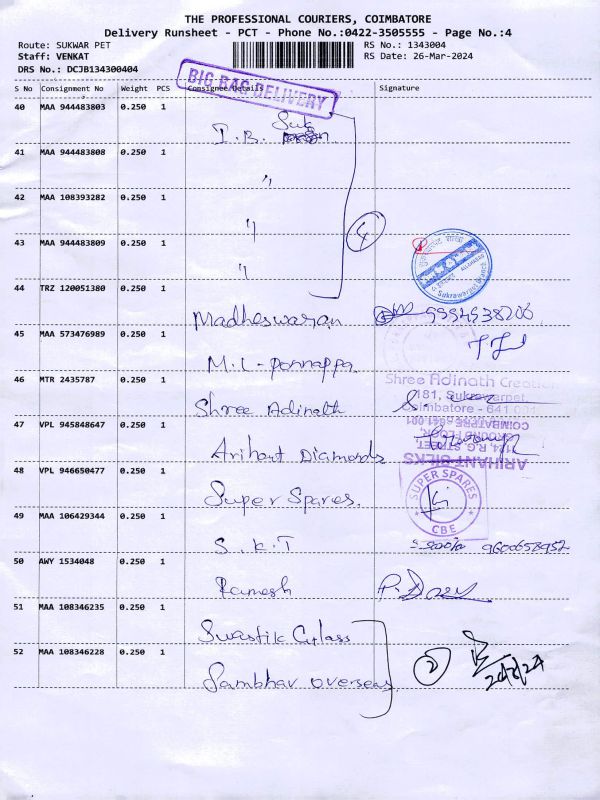 THE PROFESSIONAL COURIERS, COIMBATORE
Delivery Runsheet - PCT - Phone No.:0422-3505555 - Page No.:4
Route: SUKWAR PET
RS No.: 1343004
Staff: VENKAT
RS Date: 26-Mar-2024
DRS No.: DCJB134300404
BIG BAG DELIVERY
S No Consignment No Weight PCS Consignee Details Signature
40 MAA 944483803 0.250 1
I.B. Suk
41 MAA 944483808 0.250 1
"
42 MAA 108393282 0.250 1
"
43 MAA 944483809 0.250 1
"
4
Sukrawarpet Branch
44 TRZ 120051380 0.250 1
Madheswaran
45 MAA 573476989 0.250 1
M.L-Ponnappa
46 MTR 2435787 0.250 1
Shree Adinath
Shree Adinath Creation
181, Sukrawarpet,
Coimbatore - 641 001
47 VPL 945848647 0.250 1
Arihant Diamonds
ARIHANT SILKS
COIMBATORE-641 001
48 VPL 946650477 0.250 1
Super Spares.
SUPER SPARES
CBE
49 MAA 106429344 0.250 1
S.K.T
9600658952
50 AWY 1534048 0.250 1
Ramesh
51 MAA 108346235 0.250 1
Swastik Glass
52 MAA 108346228 0.250 1
Sambhav overseas
2